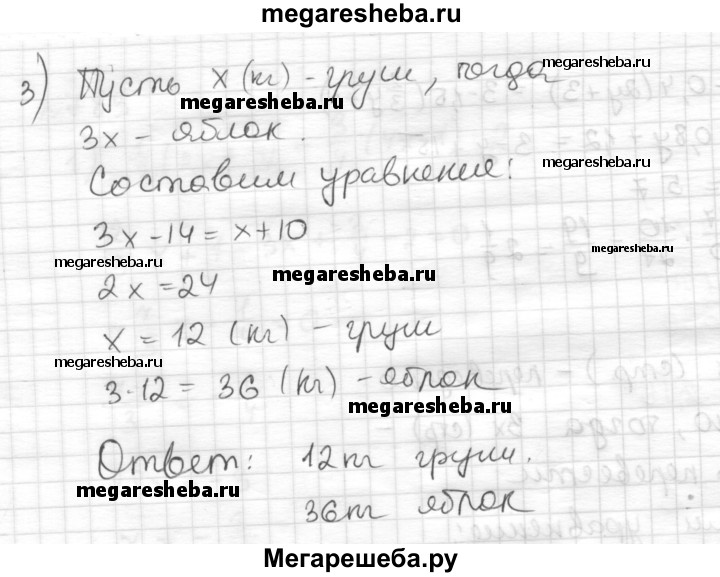 megaresheba.ru
3) Пусть х (кг) - груш, тогда
megaresheba.ru
megaresheba.ru
3х - яблок.
Составим уравнение:
megaresheba.ru
3х-14 = х+10
megaresheba.ru
megaresheba.ru
megaresheba.ru
2х = 24
х = 12 (кг) - груш
megaresheba.ru
3·12 = 36 (кг) - яблок
megaresheba.ru
Ответ: 12кг груш.
megaresheba.ru
36кг яблок
Мегарешеба.ру